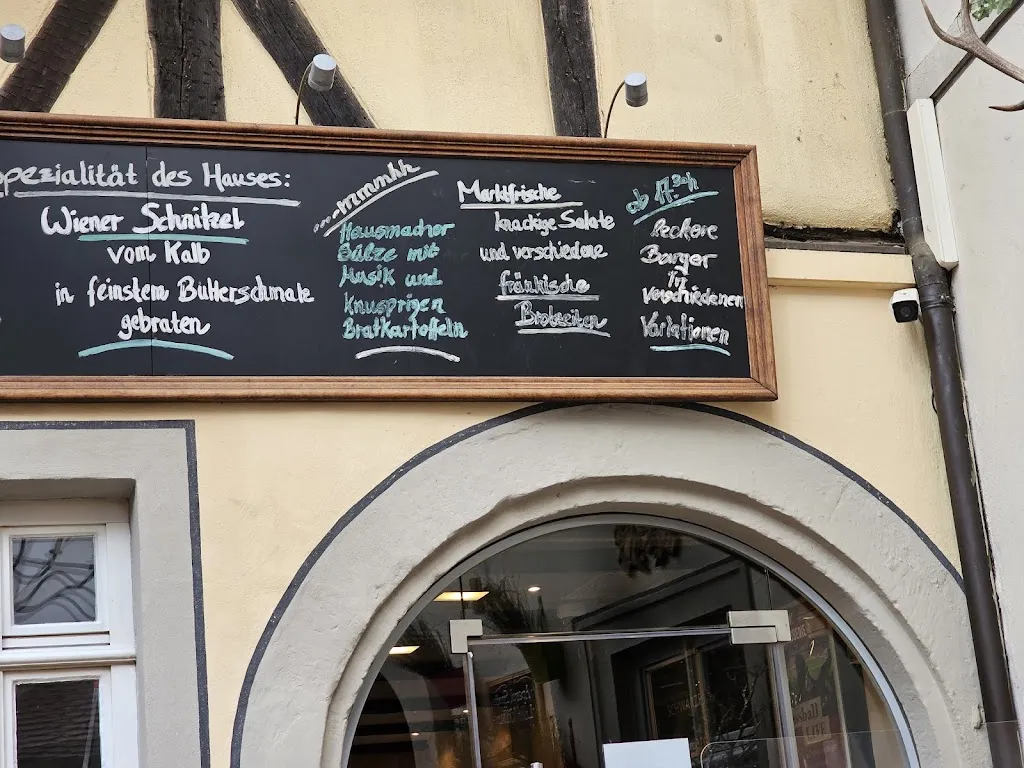 Spezialität des Hauses:
Wiener Schnitzel
vom Kalb
in feinstem Butterschmalz
gebraten
...mmmhh
Hausmacher
Sülze mit
Musik und
Knusprigen
Bratkartoffeln
Marktfrische
knackige Salate
und verschiedene
fränkische
Brotzeiten
ab 17.30h
leckere
Burger
in
verschiedenen
Variationen
LIVE